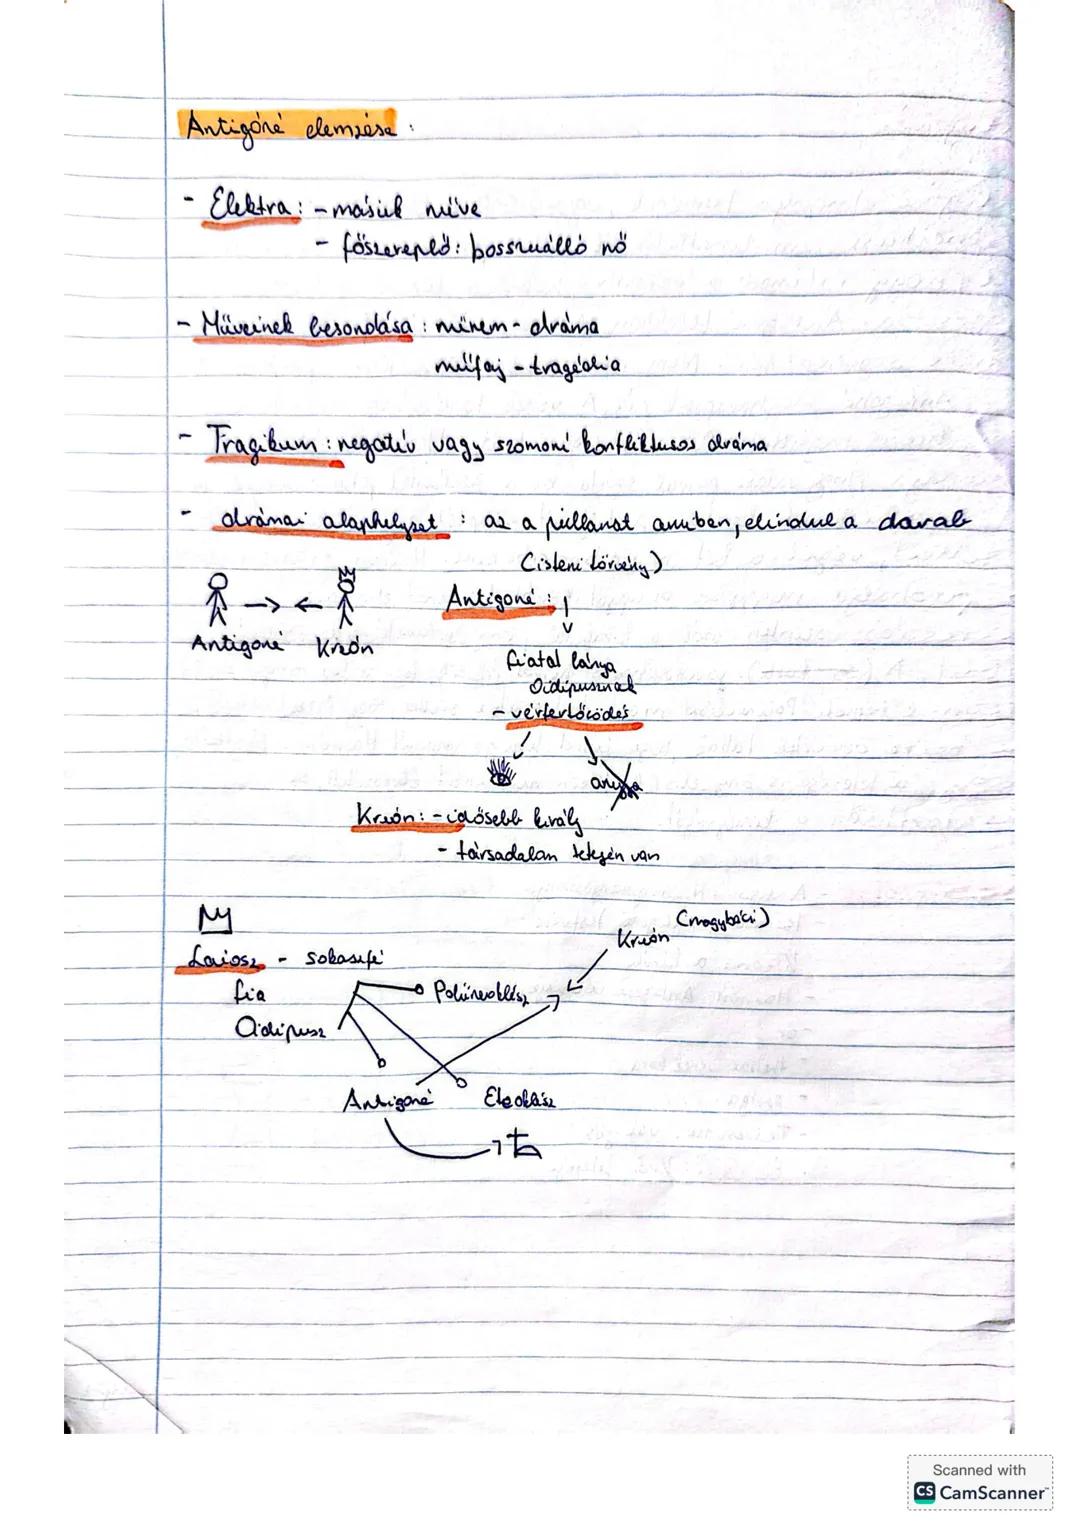 Antigóné elemzése :
- Elektra : - másik műve
- főszereplő : bosszúálló nő
- Műveinek besorolása : műnem - dráma
műfaj - tragédia
- Tragikum : negatív vagy szomorú konfliktusos dráma
- drámai alaphelyzet : az a pillanat amiben, elindul a darab
(isteni törvény)
Antigoné :
Antigoné Kreón
fiatal lánya
Oidipusznak
- vérfertőződés
anyja
Kreón : - idősebb király
- társadalom tetején van
(nagybácsi)
Kreón
Laiosz -
fia
Polüneikész
Oidipusz
Antigoné Eteoklész
Scanned with
CS CamScanner